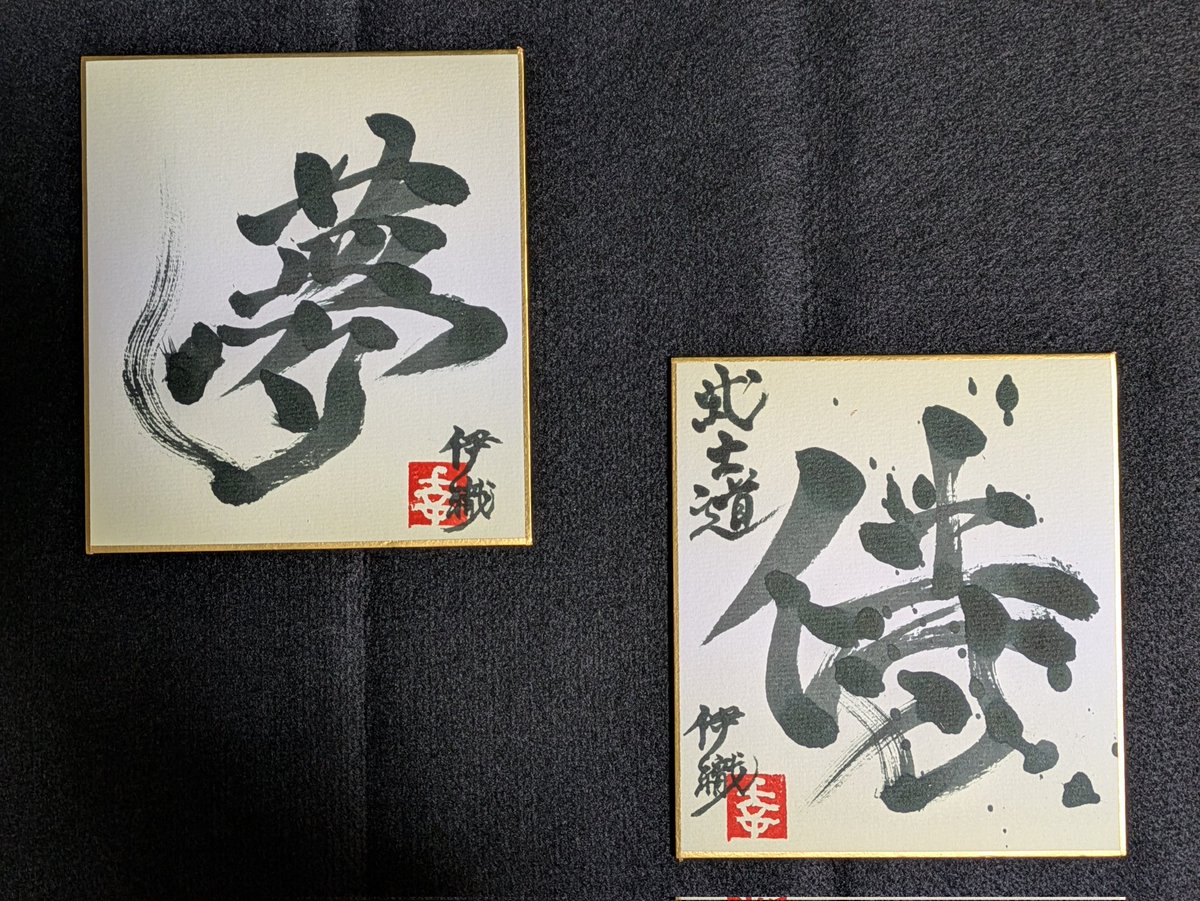 夢
伊織
幸
武士道
侍
伊織
幸